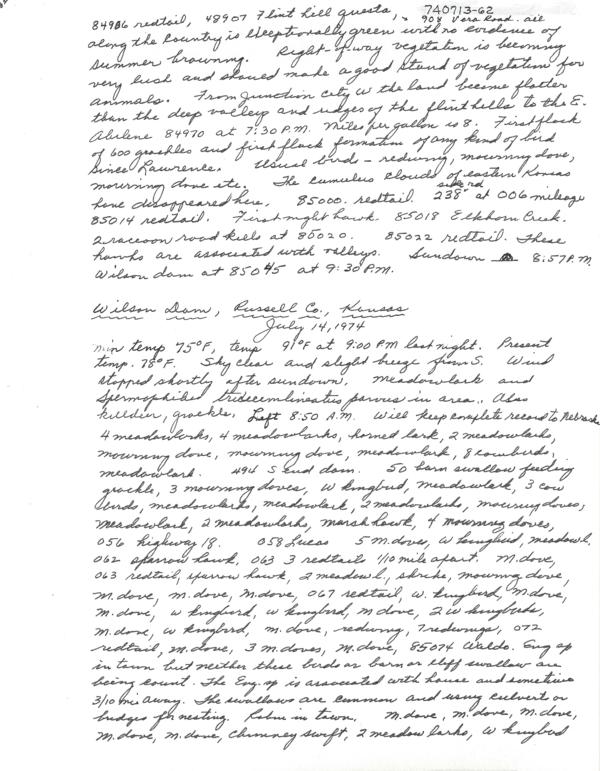 740713-62
84986 redtail, 48907 Flint hill quests, 908 Vera Road. all
along the country is exceptionally green with no evidence of
summer browning. Right-of-way vegetation is becoming
very lush and should make a good stand of vegetation for
animals. From Junction City W the land become flatter
than the deep valleys and ridges of the flint hills to the E.
Abilene 84970 at 7:30 P.M. Miles per gallon is 8. First flock
of 600 grackles and first flock formation of any kind of bird
since Lawrence. Usual birds - redwing, mourning dove,
mourning dove etc. The cumulus clouds of eastern Kansas
have disappeared here. 85000. redtail. 238 side rd at 006 mileage
85014 redtail. First night hawk. 85018 Elkhorn Creek.
2 raccoon road kills at 85020. 85022 redtail. These
hawks are associated with valleys. Sundown 8:57 P.M.
Wilson dam at 85045 at 9:30 P.M.
Wilson Dam, Russell Co., Kansas
July 14, 1974
Min temp 75°F, temp 91°F at 9:00 PM last night. Present
temp. 78°F. Sky clear and slight breeze from S. Wind
stopped shortly after sundown. Meadowlark and
Spermophilus tridecemlineatus parvus in area. Also
killdeer, grackle. Left 8:50 A.M. Will keep complete record to Nebraska
4 meadowlarks, 4 meadowlarks, horned lark, 2 meadowlarks,
mourning dove, mourning dove, meadowlark, 8 cowbirds,
meadowlark. 494 S end dam. 50 barn swallow feeding
grackle, 3 mourning doves, W kingbird, meadowlark, 3 cow
birds, meadowlarks, meadowlark, 2 meadowlarks, mourning doves,
meadowlark, 2 meadowlarks, marsh hawk, 4 mourning doves,
056 highway 18. 058 Lucas 5 M. doves, W kingbird, meadowl.
062 sparrow hawk, 063 3 redtails 1/10 mile apart. M. dove,
063 redtail, sparrow hawk, 2 meadowl, shrike, mourning dove,
M. dove, M. dove, M. dove, 067 redtail, W. kingbird, M. dove,
M. dove, W kingbird, W kingbird, M dove, 2 W kingbirds,
M. dove, W kingbird, M. dove, redwing, 7 redwings, 072
redtail, M. dove, 3 M. doves, M. dove, 85074 Waldo. Eng sp
in town but neither these birds or barn or cliff swallow are
being count. The Eng. sp is associated with house and sometimes
3/10 mi away. The swallows are common and using culvert or
bridges for nesting. Robin in town. M. dove, M. dove, M. dove,
M. dove, M. dove, chimney swift, 2 meadow larks, W kingbird